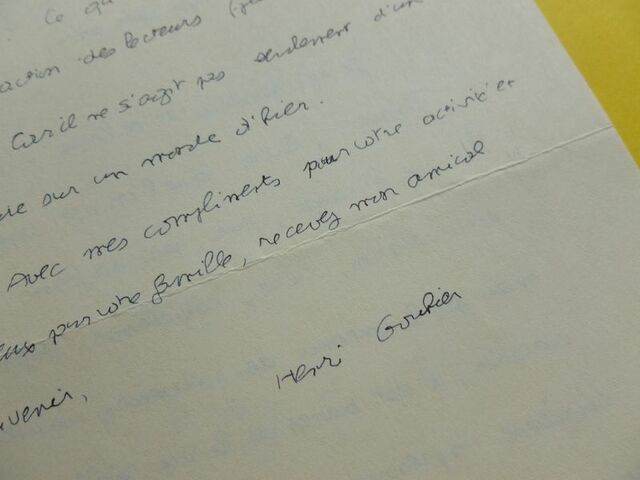 Ce qu
action des lecteurs (
Car il ne s'agit pas seulement d'un
sur un monde d'hier.
Avec mes compliments pour votre activité et
eux pour votre famille, recevez mon amical
uvenir,
Henri Gouhier